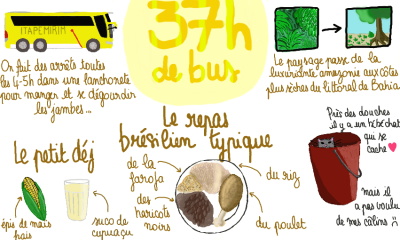 ITAPEMIRIM
37h
de bus
On fait des arrêts toutes
les 4-5h dans une lanchonete
pour manger et se dégourdir
les jambes...
Le paysage passe de la
luxuriante amazonie aux côtes
plus sèches du littoral de Bahia
Le repas
brésilien typique
Le petit déj
de la
farofa
des
haricots
noirs
du riz
du poulet
épis de maïs
frais
suco de
cupuaçu
Près des douches
il y a un bébé chat
qui se
cache
mais il
a pas voulu
de mes câlins :(